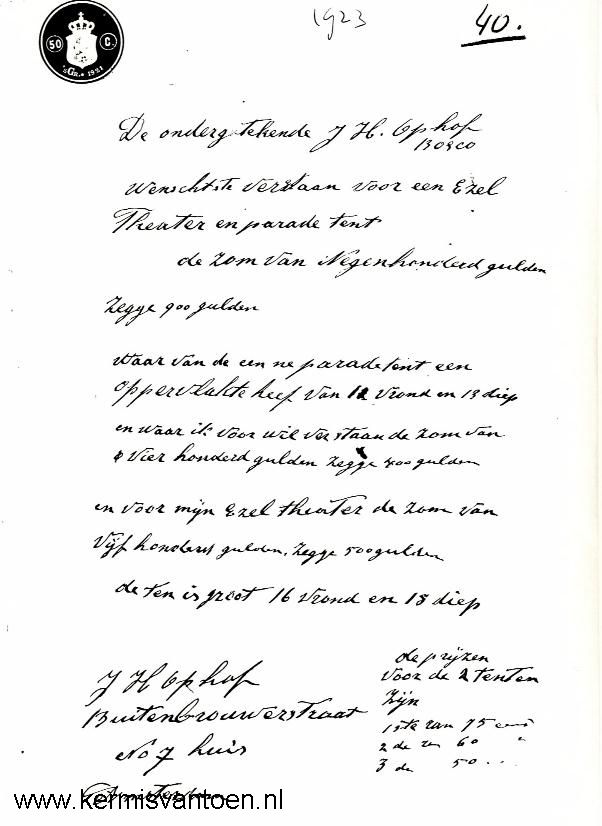 1923
40.
50 C.
De onderg tekende J H. Ophof
Bosco
Wenschtste verstaan voor een Ezel
Theater en parade tent
de zom van Negenhonderd gulden
zegge 900 gulden
waar van de een ne parade tent een
oppervlakte heef van 12 vrond en 13 diep
en waar ik voor wil verstaan de zom van
vier honderd gulden zegge 400 gulden
en voor mijn Ezel theater de zom van
Vijf honderd gulden. zegge 500 gulden
de ten is groot 16 vrond en 15 diep
de prijzen
voor de 2 tenten
zijn
1ste ran 75 cent
2 de ran 60 "
3 de 50 ...
J H Ophof
Buitenbrouwerstraat
No 7 huis
Amsterdam
www.kermisvantoen.nl